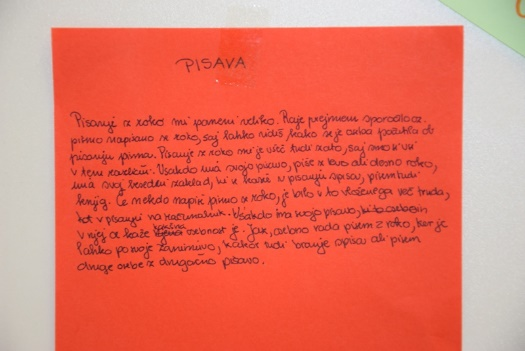 PISAVA
Pisanje z roko mi pomeni veliko. Raje prejmem sporočilo oz.
pismo napisano z roko, saj lahko vidiš, kako se je oseba počutila ob
pisanju pisma. Pisanje z roko mi je všeč tudi zato, saj smo si vsi
v tem različni. Vsakdo ima svojo pisavo, piše z levo ali desno roko,
ima svoj besedni zaklad, ki se kaže v pisanju spisov, pisem tudi
knjig. Če nekdo napiše pismo z roko, je bilo v to vloženega več truda,
kot v pisanju na računalnik. Vsakdo ima svojo pisavo,
v njej se kaže osebnost je. Jak, osebno rada pišem z roko, ker je
lahko po svoje zanimivo, kakor tudi branje spisov ali pisem
druge osebe z drugačno pisavo.